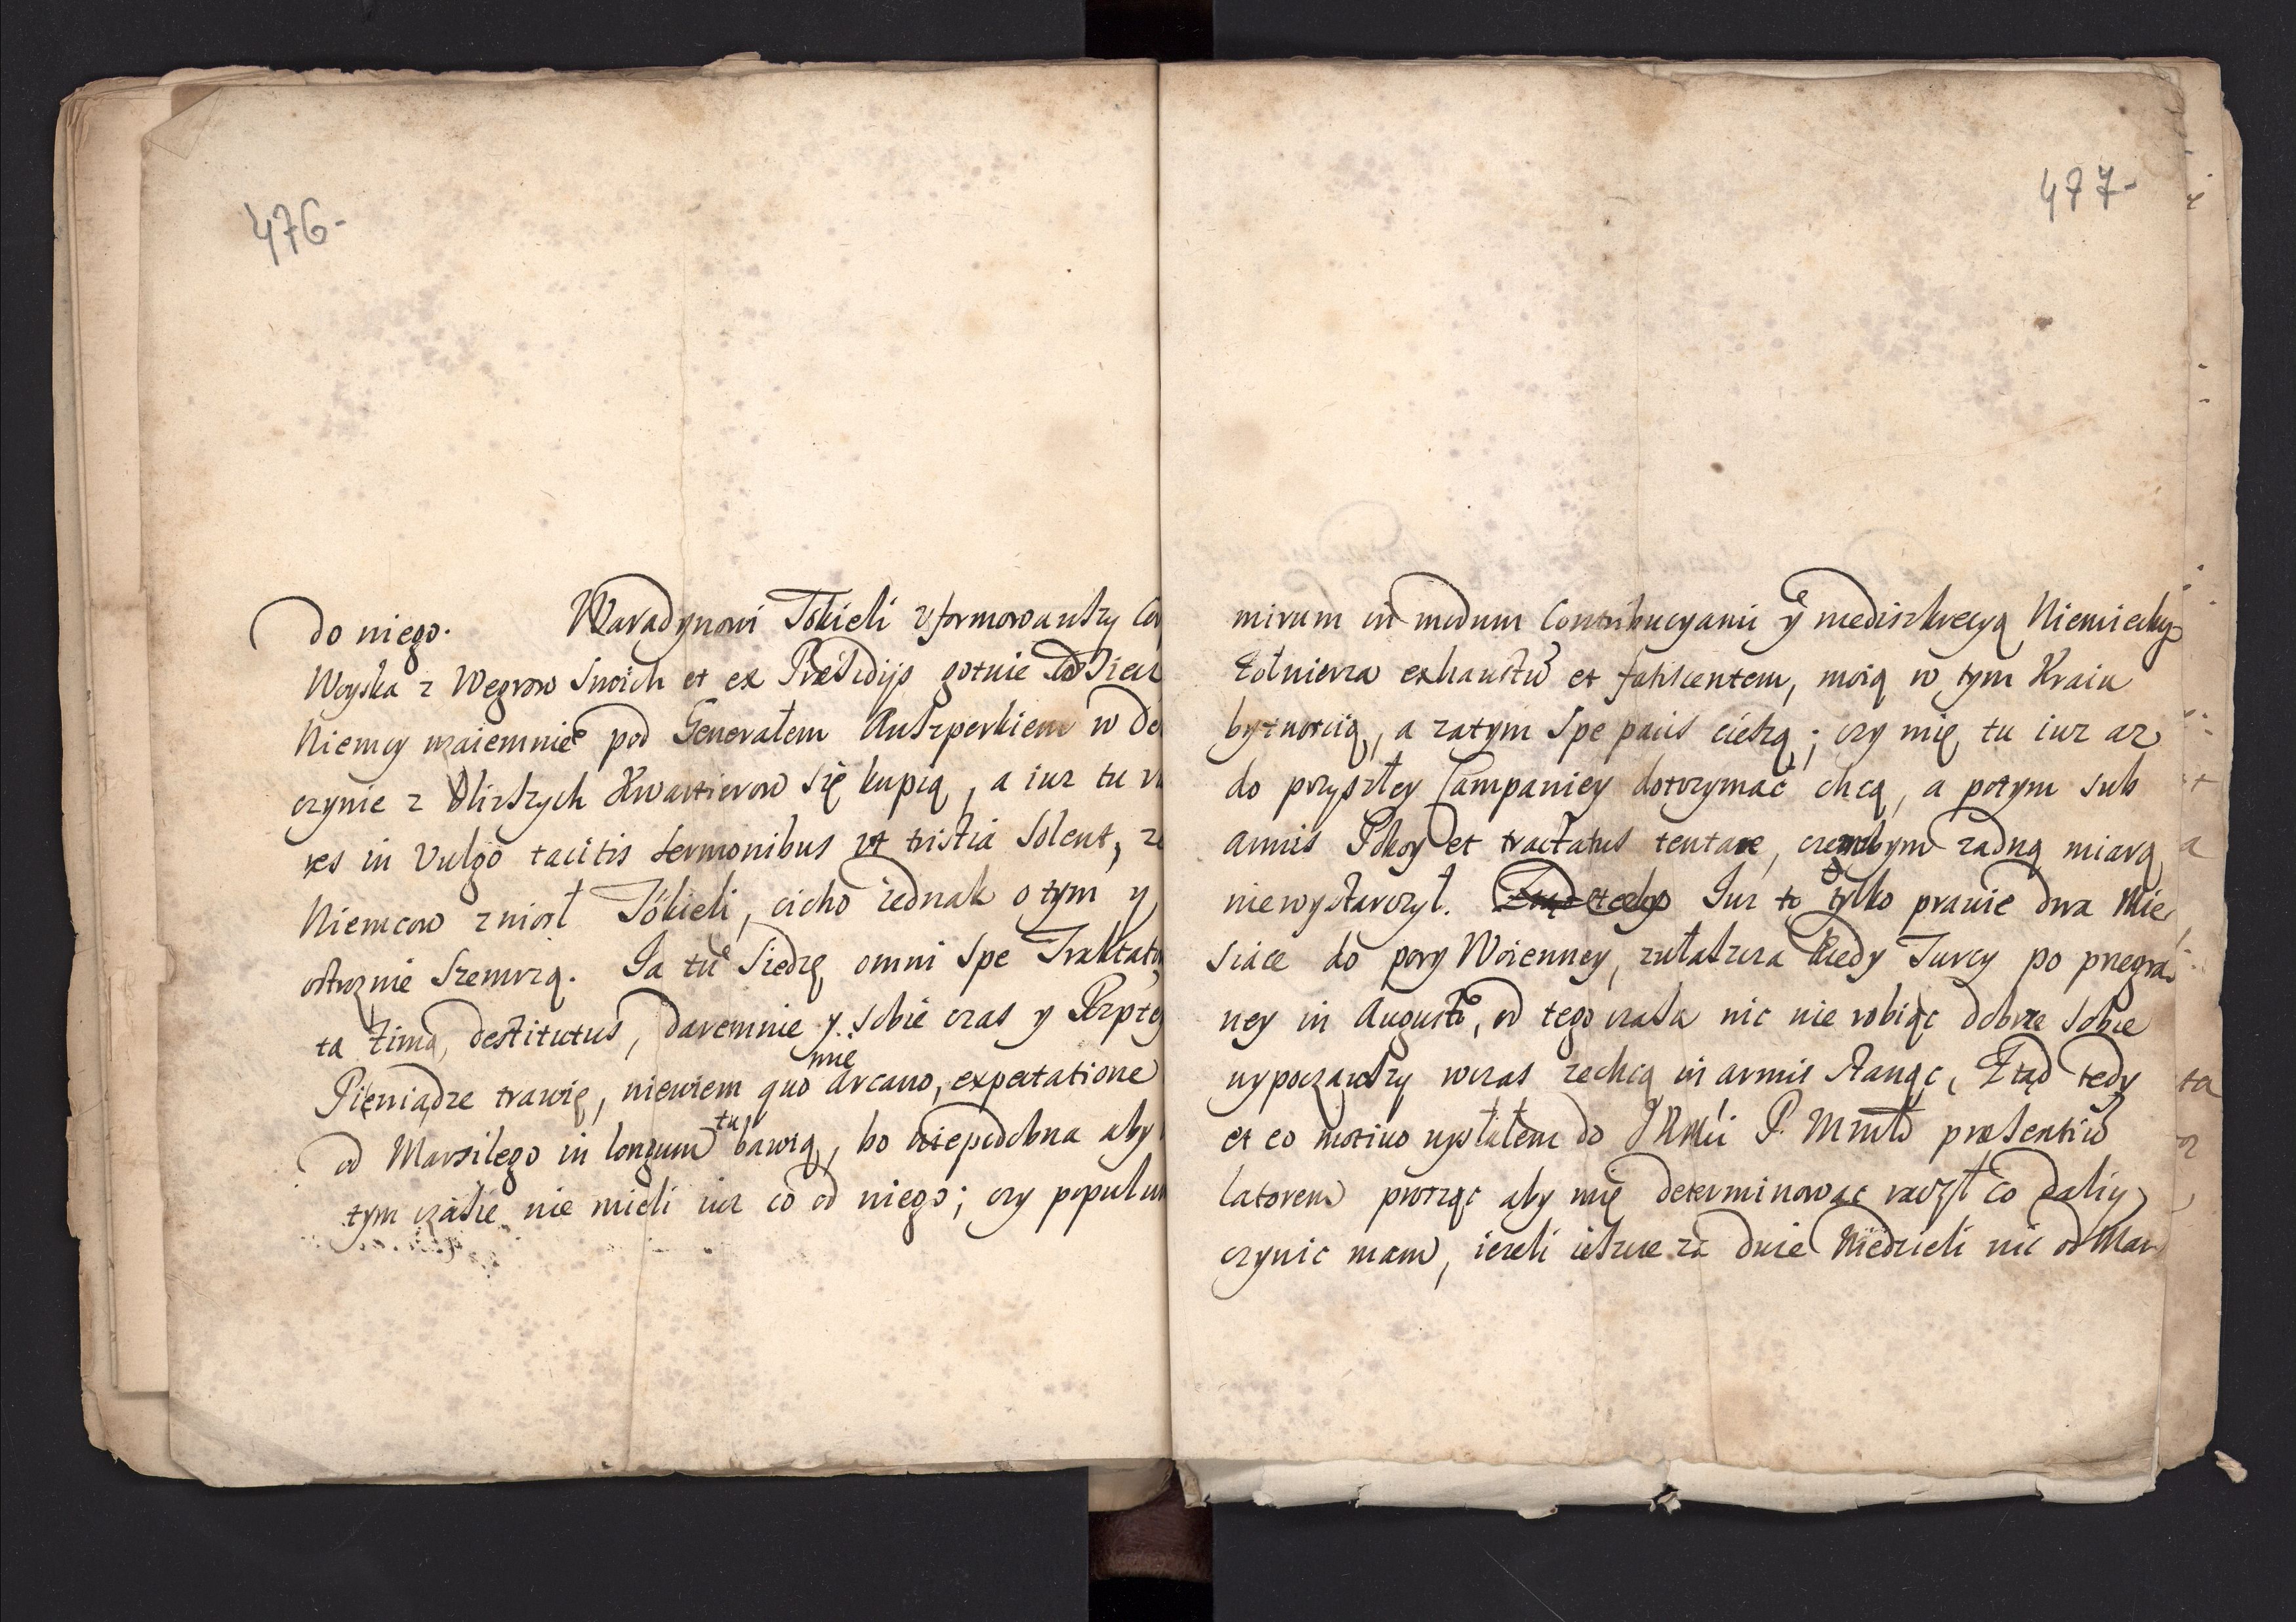 476-
do niego. Waradynowi Tökieli uformowawszy Co
Woyska z Węgrow swoich et ex Præsidijs gotuie
Niemcy wzaiemnie pod Generałem Auszperkiem w De
czynie z Bliszych Kwartierow się kupią, a iuz tu
res in Vulgo tacitis sermonibus ut tristia solent, ze
Niemcow zniosł Tökieli, cicho iednak o tym y
ostroznie szemrzą. Ja tu siedzę omni spe Traktatow
ta zima, destitutus, daremnie y sobie czas y Rzptey
Pieniądze trawię, niewiem quo mie arcano, expectatione
od Marsilego in longum tu bawią, bo niepodobna aby
tym czasie nie mieli iuz co od niego; czy populum
477-
mirum in modum Contribucyami y niediszkrecyą Niemieckiego
Zołnierza exhaustum et fatiscentem, moią w tym Kraiu
bytnoscią, a zatym spe pacis cieszą; czy mię tu iuz az
do przyszłey Campaniey dotrzymać chcą, a potym sub
armis Pokoy et tractatus tentare, czemubym zadną miarą
niewystarczył. Ztąd tedy Iuz to tylko prawie dwa Mie
siące do pory Woienney, zwłaszcza kiedy Turcy po przegra
ney in Augusto, od tego czasu nic nie robiąc dobrze sobie
wypoczawszy wczas zechcą in armis stanąć, Ztąd tedy
et eo motivo wysłałem do P. præsentium
latorem prosząc aby mię determinować raczył co daliy
czynic mam, iezeli ieszcze za dwie Niedzieli nic od Mar